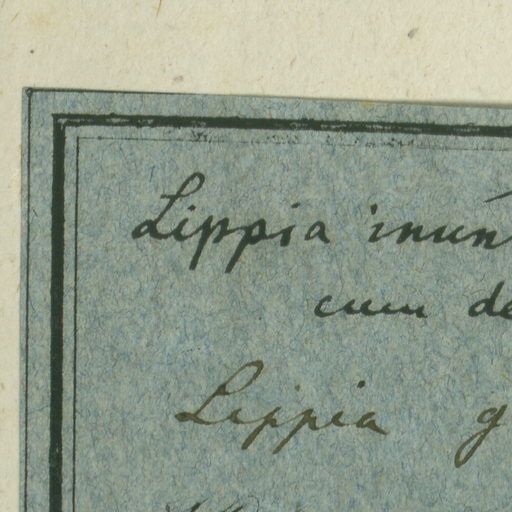 Lippia inun
cum de
Lippia g